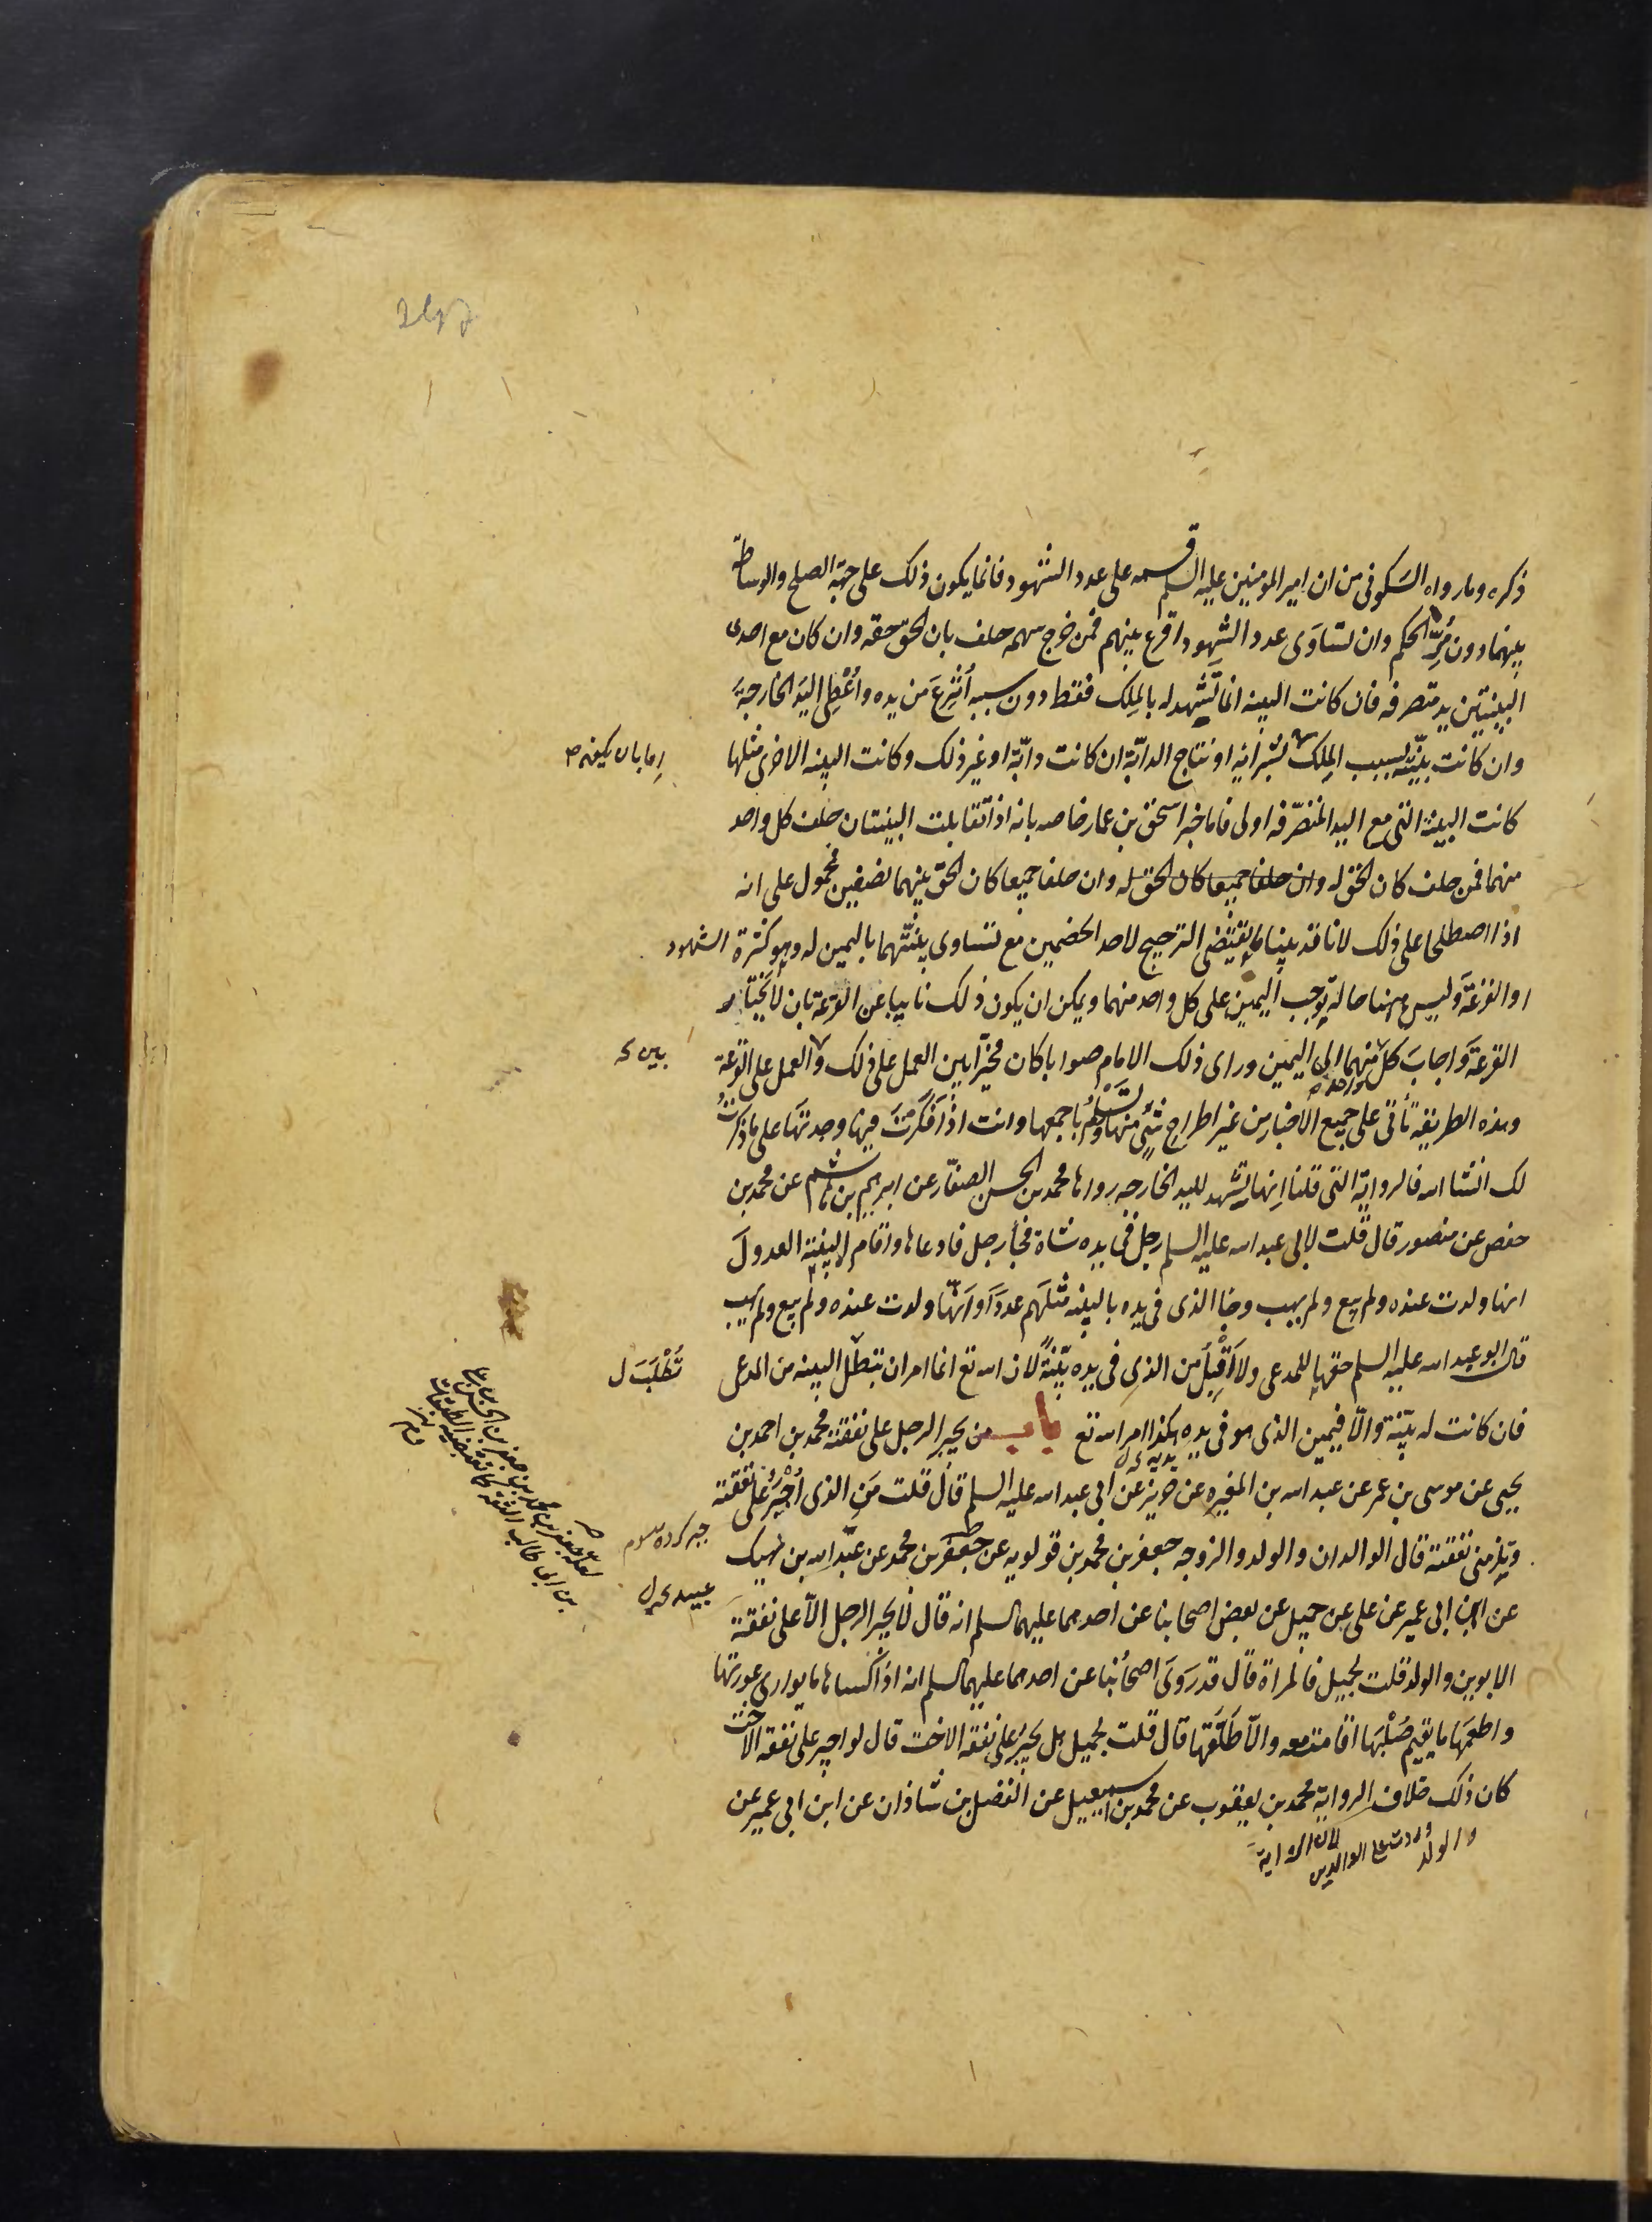 ذكره وما رواه السكونى من ان امير المومنين عليه السلم قسمه على عدد الشهود فانما يكون ذلك على جهة الصلح والوساطة
بينهما دون مُرِّ الحكم وان تساوَى عدد الشهود اقرع بينهم فمن خرج سهمه حلف بان الحق حقه وان كان مع احدى
البينتين يد متصرفه فان كانت البينه انما تَشهد له بالمِلك فقط دون سببه اُنتُزِعَ من يده واُعْطِى اليَد الخارجةَ
وان كانت بيّنته لسبب المِلك بشرائه او نتاج الدابّة ان كانت دابّة او غير ذلك وكانت البينه الاخرى مثلها
اما بان يكون
كانت البينة التى مع اليد المتصرّفه اولى فاما خبر اسحق بن عمار خاصه بانه اذا تقابلت البينتان حلف كل واحد
منهما فمن حلف كان الحق له وان حلفا جميعا كان الحق له وان حلفا جميعا كان الحق بينهما نصفين فمحمول على انه
اذا اصطلحا على ذلك لانا قد بينا ما يقتضى الترجيح لاحد الخصمين مع تساوى بينتهما باليمين له وهو كثرة الشهود
او القرعةَ وليس ههنا حالة توجب اليمين على كل واحد منهما ويمكن ان يكون ذلك نايبا عن القرعة بان لا يختار
القرعةَ واجابَ كل واحد منهما الى اليمين وراى ذلك الامام صوابا كان مخيّرا بين العمل على ذلك والعمل على القرعة
بين
وهذه الطريقة تأتى على جميع الاخبار من غير اطراح شئ منها وتسْلَمُ باجمعها وانت اذا فكرتَ فيها وجدتَها على ما ذكرتُ
لك انشا الله فالرواية التى قلنا اِنها تشهد لليد الخارجه رواها محمد بن الحسن الصفّار عن ابرهيم بن هاشم عن محمد بن
حفص عن منصور قال قلت لابى عبد الله عليه السلم رجل فى يده شاة فجأ رجل فادعاها واقام البينة العدول
انها ولدت عنده ولم يبع ولم يهب وجا الذى فى يده بالبينه مثلهم عدد او انّها ولدت عنده ولم يبع ولم يهب
قال ابو عبد الله عليه السلم حقها للمدعى ولا اَقْبِلُ من الذى فى يده بيّنةً لان الله تع انما امر ان تطلب البينه من المدعى
تُطْلَبَ ل
فان كانت له بيّنة والّا فيمين الذى هو فى يده هكذا امر الله تع باب من يجبر الرجل على نفقته محمد بن احمد بن
يحيى عن موسى بن عمر عن عبد الله بن المغيره عن حريز عن ابى عبد الله عليه السلم قال قلت مَنِ الذى اُجْبَرُ على نفقته
وتلزمنى نفقته قال الوالدان والولد والزوجه جعفر بن محمد بن قولويه عن جعفر بن محمد عن عبد الله بن نهيك
عبيد
عن ابن ابى عمير عن على عن جميل عن بعض اصحابنا عن احدهما عليهما السلم انه قال لا يجبر الرجل الّا على نفقة
الابوين والولد قلت لجميل فالمراة قال قد رَوَى اصحابُنا عن احدهما عليهما السلم انه اذا كساها ما يوارى عورتها
واطعمَها ما يقيم صُلْبَها اقامت معه والّا طَلّقها قال قلت لجميل هل يجبر على نفقة الاخت قال لو اجبر على نفقة الاخت
كان ذلك خلاف الرواية محمد بن يعقوب عن محمد بن اسمعيل عن الفضل بن شاذان عن ابن ابى عمير عن